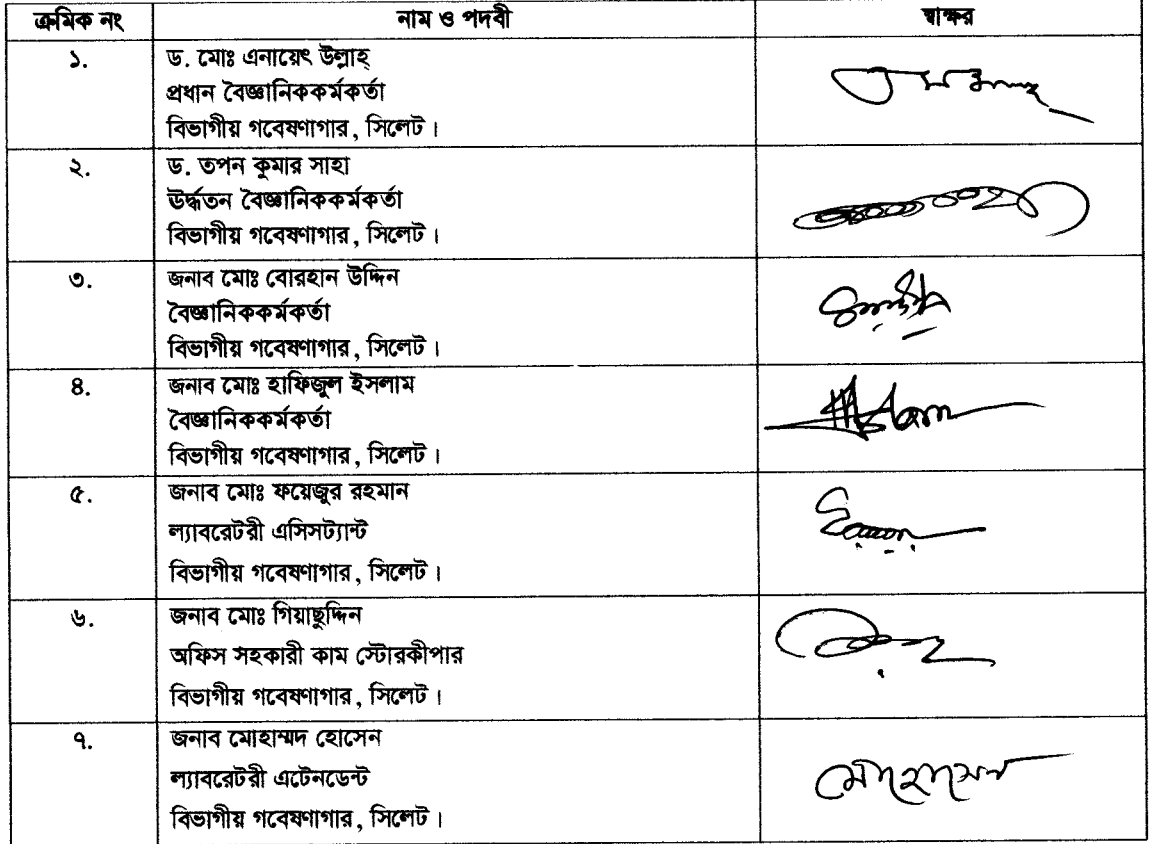 ক্রমিক নং	নাম ও পদবী	স্বাক্ষর
১.	ড. মোঃ এনায়েৎ উল্লাহ্
প্রধান বৈজ্ঞানিককর্মকর্তা
বিভাগীয় গবেষণাগার, সিলেট।
২.	ড. তপন কুমার সাহা
ঊর্দ্ধতন বৈজ্ঞানিককর্মকর্তা
বিভাগীয় গবেষণাগার, সিলেট।
৩.	জনাব মোঃ বোরহান উদ্দিন
বৈজ্ঞানিককর্মকর্তা
বিভাগীয় গবেষণাগার, সিলেট।
৪.	জনাব মোঃ হাফিজুল ইসলাম
বৈজ্ঞানিককর্মকর্তা
বিভাগীয় গবেষণাগার, সিলেট।
৫.	জনাব মোঃ ফয়েজুর রহমান
ল্যাবরেটরী এসিসট্যান্ট
বিভাগীয় গবেষণাগার, সিলেট।
৬.	জনাব মোঃ গিয়াছুদ্দিন
অফিস সহকারী কাম স্টোরকীপার
বিভাগীয় গবেষণাগার, সিলেট।
৭.	জনাব মোহাম্মদ হোসেন
ল্যাবরেটরী এটেনডেন্ট
বিভাগীয় গবেষণাগার, সিলেট।